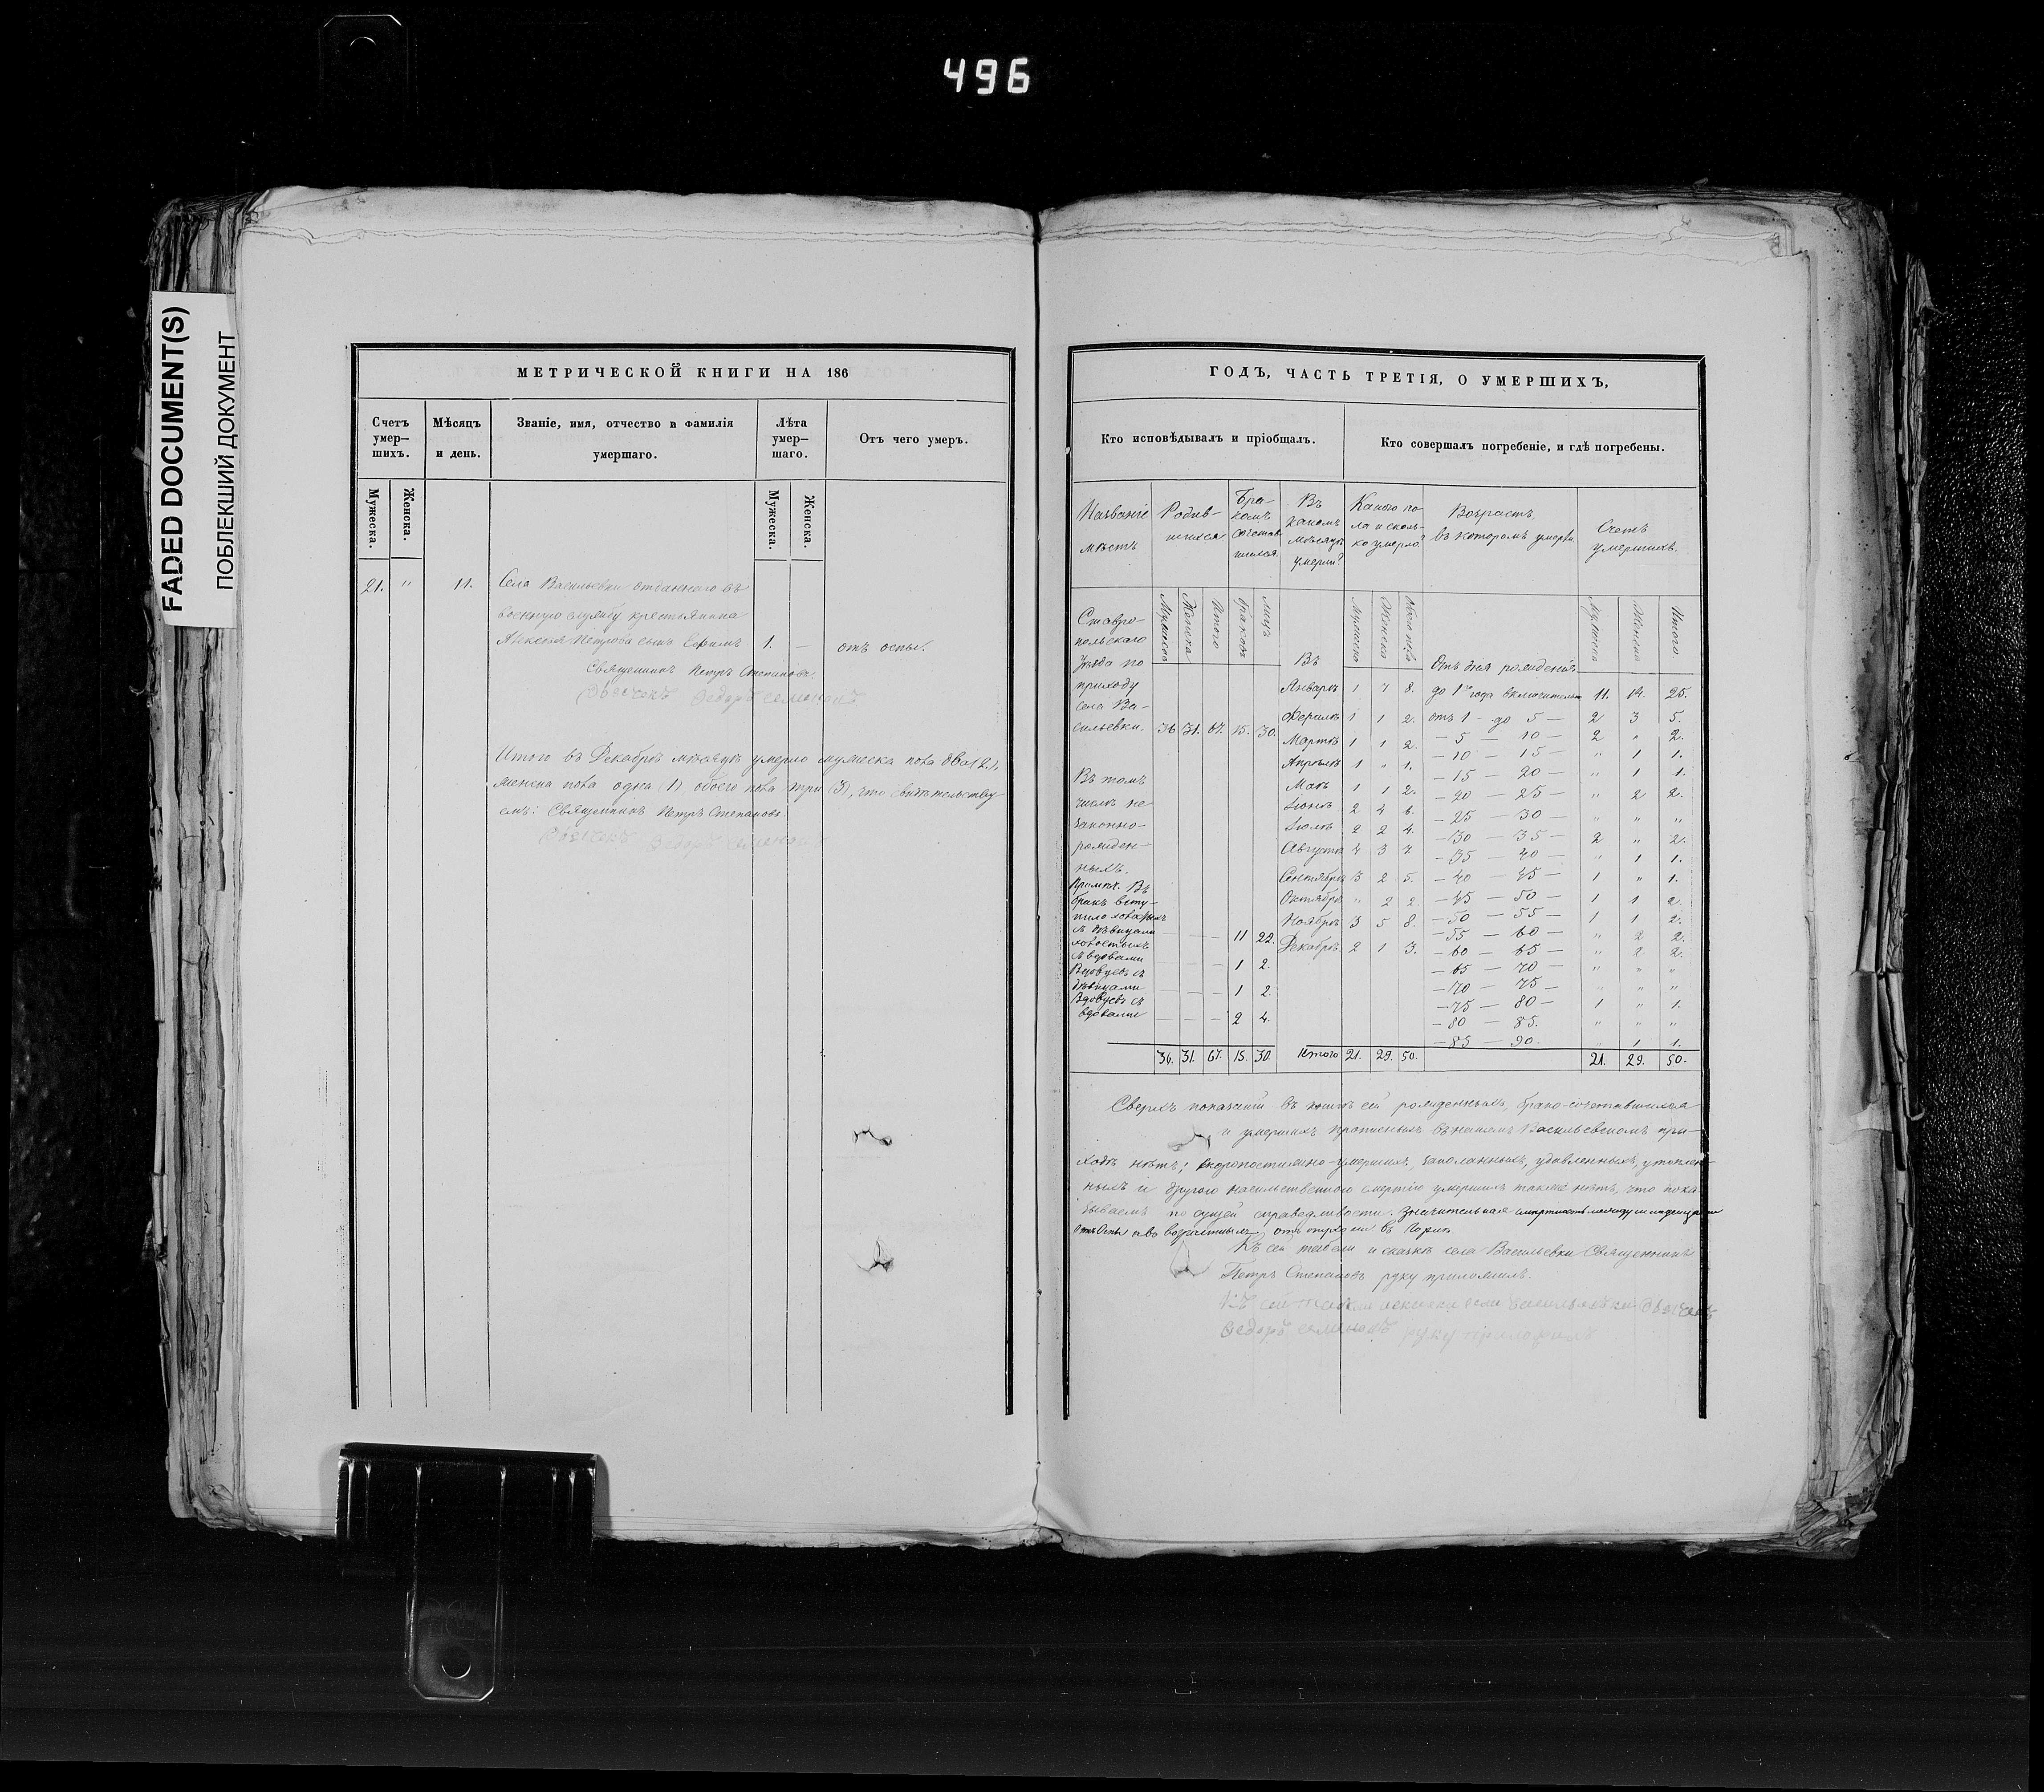 496
FADED DOCUMENT(S)
ПОБЛЕКШИЙ ДОКУМЕНТ
МЕТРИЧЕСКОЙ КНИГИ НА 186
Счетъ умер–шихъ.
Мѣсяцъ и день.
Званіе, имя, отчество и фамилія умершаго.
Лѣта умер–шаго.
Отъ чего умеръ.
Мужеска. Женска. Мужеска. Женска.
21. " 11. Села Васильевки отданнаго въ
военную службу крестьянина
Алексея Петрова сынъ Ефимъ 1. — отъ оспы.
Священникъ Петръ Степановъ.
Дьячекъ Федоръ Семеновъ
Итого въ Декабрѣ мѣсяцѣ умерло мужеска пола два (2),
женска пола одна (1) обоего пола три (3), что свидѣтельству-
емъ: Священникъ Петръ Степановъ.
Дьячекъ Федоръ Семеновъ
ГОДЪ, ЧАСТЬ ТРЕТІЯ, О УМЕРШИХЪ,
Кто исповѣдывалъ и пріобщалъ.
Кто совершалъ погребеніе, и гдѣ погребены.
Названіе мѣстъ
Родив-шихся
Бра-комъ сочетав-шихся.
Въ какомъ мѣсяцѣ умерли?
Какого по-ла и сколь-ко умерло?
Возрастъ, въ которомъ умерли.
Счетъ умершихъ.
Мужеска Женска Итого браковъ лицъ Мужеска Женска обоего пола Мужеска Женска Итого.
Ставро-
польскаго
уѣзда по
приходу
села Ва-
сильевки. 36 31. 67. 15. 30.
Въ томъ
числѣ не-
законно-
рожден-
ныхъ.
Примѣч. Въ
бракъ всту-
пило холостыхъ
съ дѣвицами — — — 11 22.
холостыхъ
съ вдовами — — — 1 2.
Вдовцевъ съ
дѣвицами — — — 1 2.
Вдовцевъ съ
вдовами — — — 2 4.
36. 31. 67. 15. 30.
Въ
Январѣ 1 7 8.
Февралѣ 1 1 2.
Мартѣ 1 1 2.
Апрѣлѣ 1 " 1.
Маѣ 1 1 2.
Іюнѣ 2 4 6.
Іюлѣ 2 2 4.
Августѣ 4 3 7
Сентябрѣ 3 2 5.
Октябрѣ " 2 2.
Ноябрѣ 3 5 8.
Декабрѣ 2 1 3.
Итого 21. 29. 50.
Отъ дня рожденія
до 1го года включительно 11. 14. 25.
отъ 1 — до 5 — 2 3 5.
— 5 — 10 — 2 " 2.
— 10 — 15 — " 1 1.
— 15 — 20 — " 1 1.
— 20 — 25 — " 2 2.
— 25 — 30 — " " "
— 30 — 35 — 2 " 2.
— 35 — 40 — " 1 1.
— 40 — 45 — 1 " 1.
— 45 — 50 — 1 1 2.
— 50 — 55 — 1 1 2.
— 55 — 60 — " 2 2.
— 60 — 65 — " 2 2.
— 65 — 70 — " " "
— 70 — 75 — " " "
— 75 — 80 — 1 " 1.
— 80 — 85. " " "
— 85 — 90. " 1 1.
21. 29. 50.
Сверхъ показаній въ книгѣ сей рожденныхъ, брако-сочетавшихся
и умершихъ прописныхъ въ нашемъ Васильевскомъ при-
ходѣ нѣтъ; скоропостижно-умершихъ, заколанныхъ, удавленныхъ, утоплен-
ныхъ и другою насильственною смертію умершихъ также нѣтъ, что пока-
зываемъ по сущей справедливости. Значительная смертность между младенцами
отъ Оспы а во возрастныхъ отъ
Къ сей табели и сказкѣ села Васильевки Священникъ
Петръ Степановъ руку приложилъ.
Къ сей табели и скаске села Васильевки Дьячекъ
Федоръ Семеновъ руку приложилъ